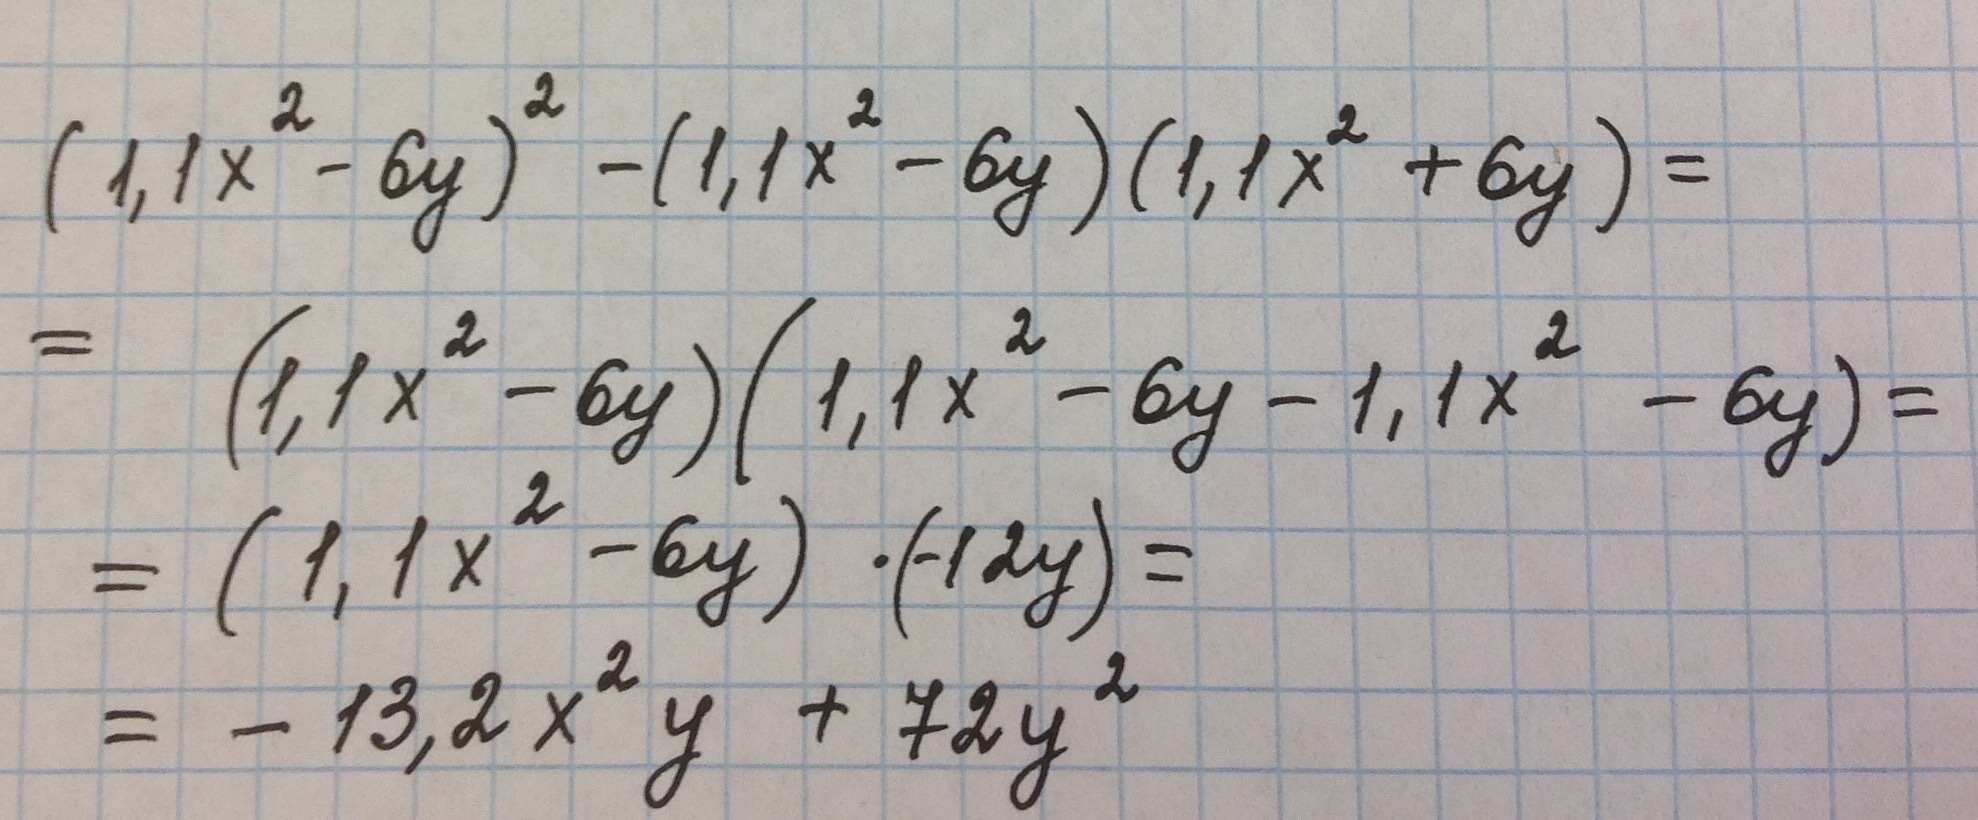 (1,1x² - 6y)² - (1,1x² - 6y)(1,1x² + 6y) =
= (1,1x² - 6y)(1,1x² - 6y - 1,1x² - 6y) =
= (1,1x² - 6y) · (-12y) =
= - 13,2x²y + 72y²